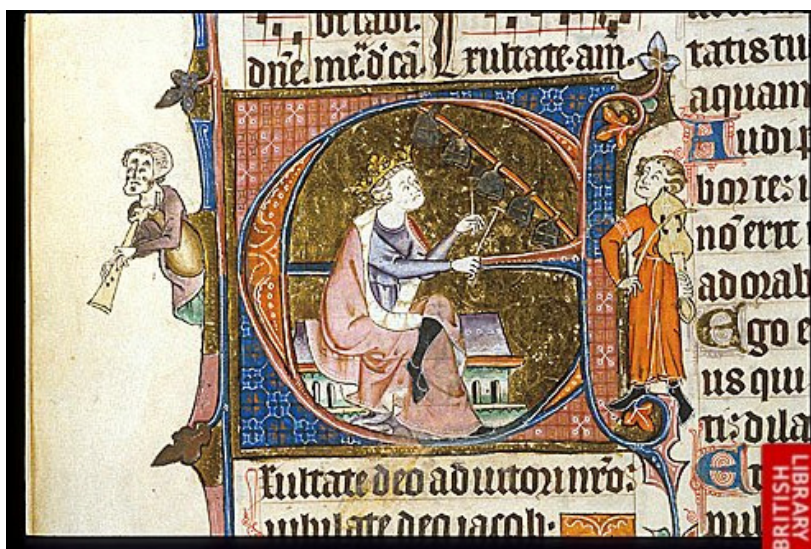 dn̄e. mēd̄cā. Exultate. am.
E
xultate deo adiutori nr̄o:
iubilate deo iacob.
tatis tu
aquam
Audi p
bor te: i
nō erit i
adorab
Ego e
us qui
ti: dila
Et
pul
BRITISH
LIBRARY